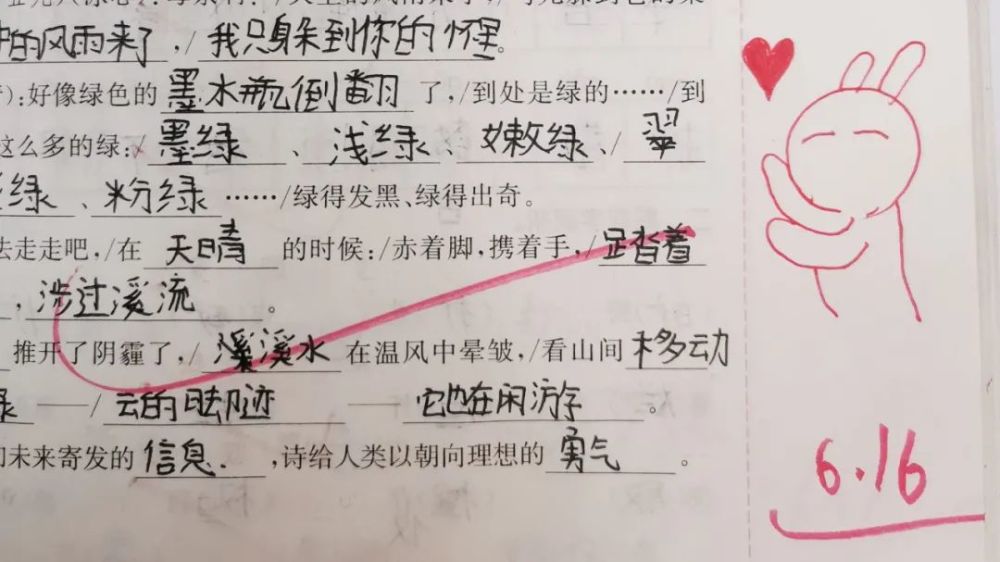 中的风雨来了，/我只躲到你的怀里。
：好像绿色的墨水瓶倒翻了，/到处是绿的……/到
这么多的绿：/墨绿、浅绿、嫩绿、/翠
绿、粉绿……/绿得发黑、绿得出奇。
去走走吧，/在天晴的时候：/赤着脚，携着手，/踏着
，涉过溪流。
推开了阴霾了，/溪水在温风中晕皱，/看山间移动
——/云的脚迹——它也在闲游。
未来寄发的信息，诗给人类以朝向理想的勇气。
6.16